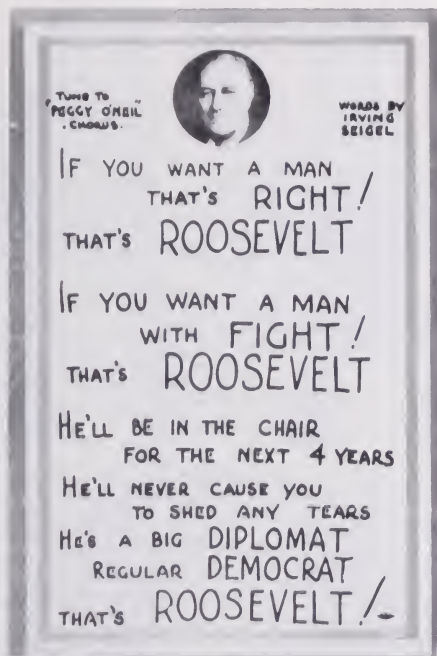 TUNE TO
"PEGGY O'NEIL"
CHORUS.
WORDS BY
IRVING
SEIGEL
IF YOU WANT A MAN
THAT'S RIGHT!
THAT'S ROOSEVELT
IF YOU WANT A MAN
WITH FIGHT!
THAT'S ROOSEVELT
HE'LL BE IN THE CHAIR
FOR THE NEXT 4 YEARS
HE'LL NEVER CAUSE YOU
TO SHED ANY TEARS
HE'S A BIG DIPLOMAT
REGULAR DEMOCRAT
THAT'S ROOSEVELT!